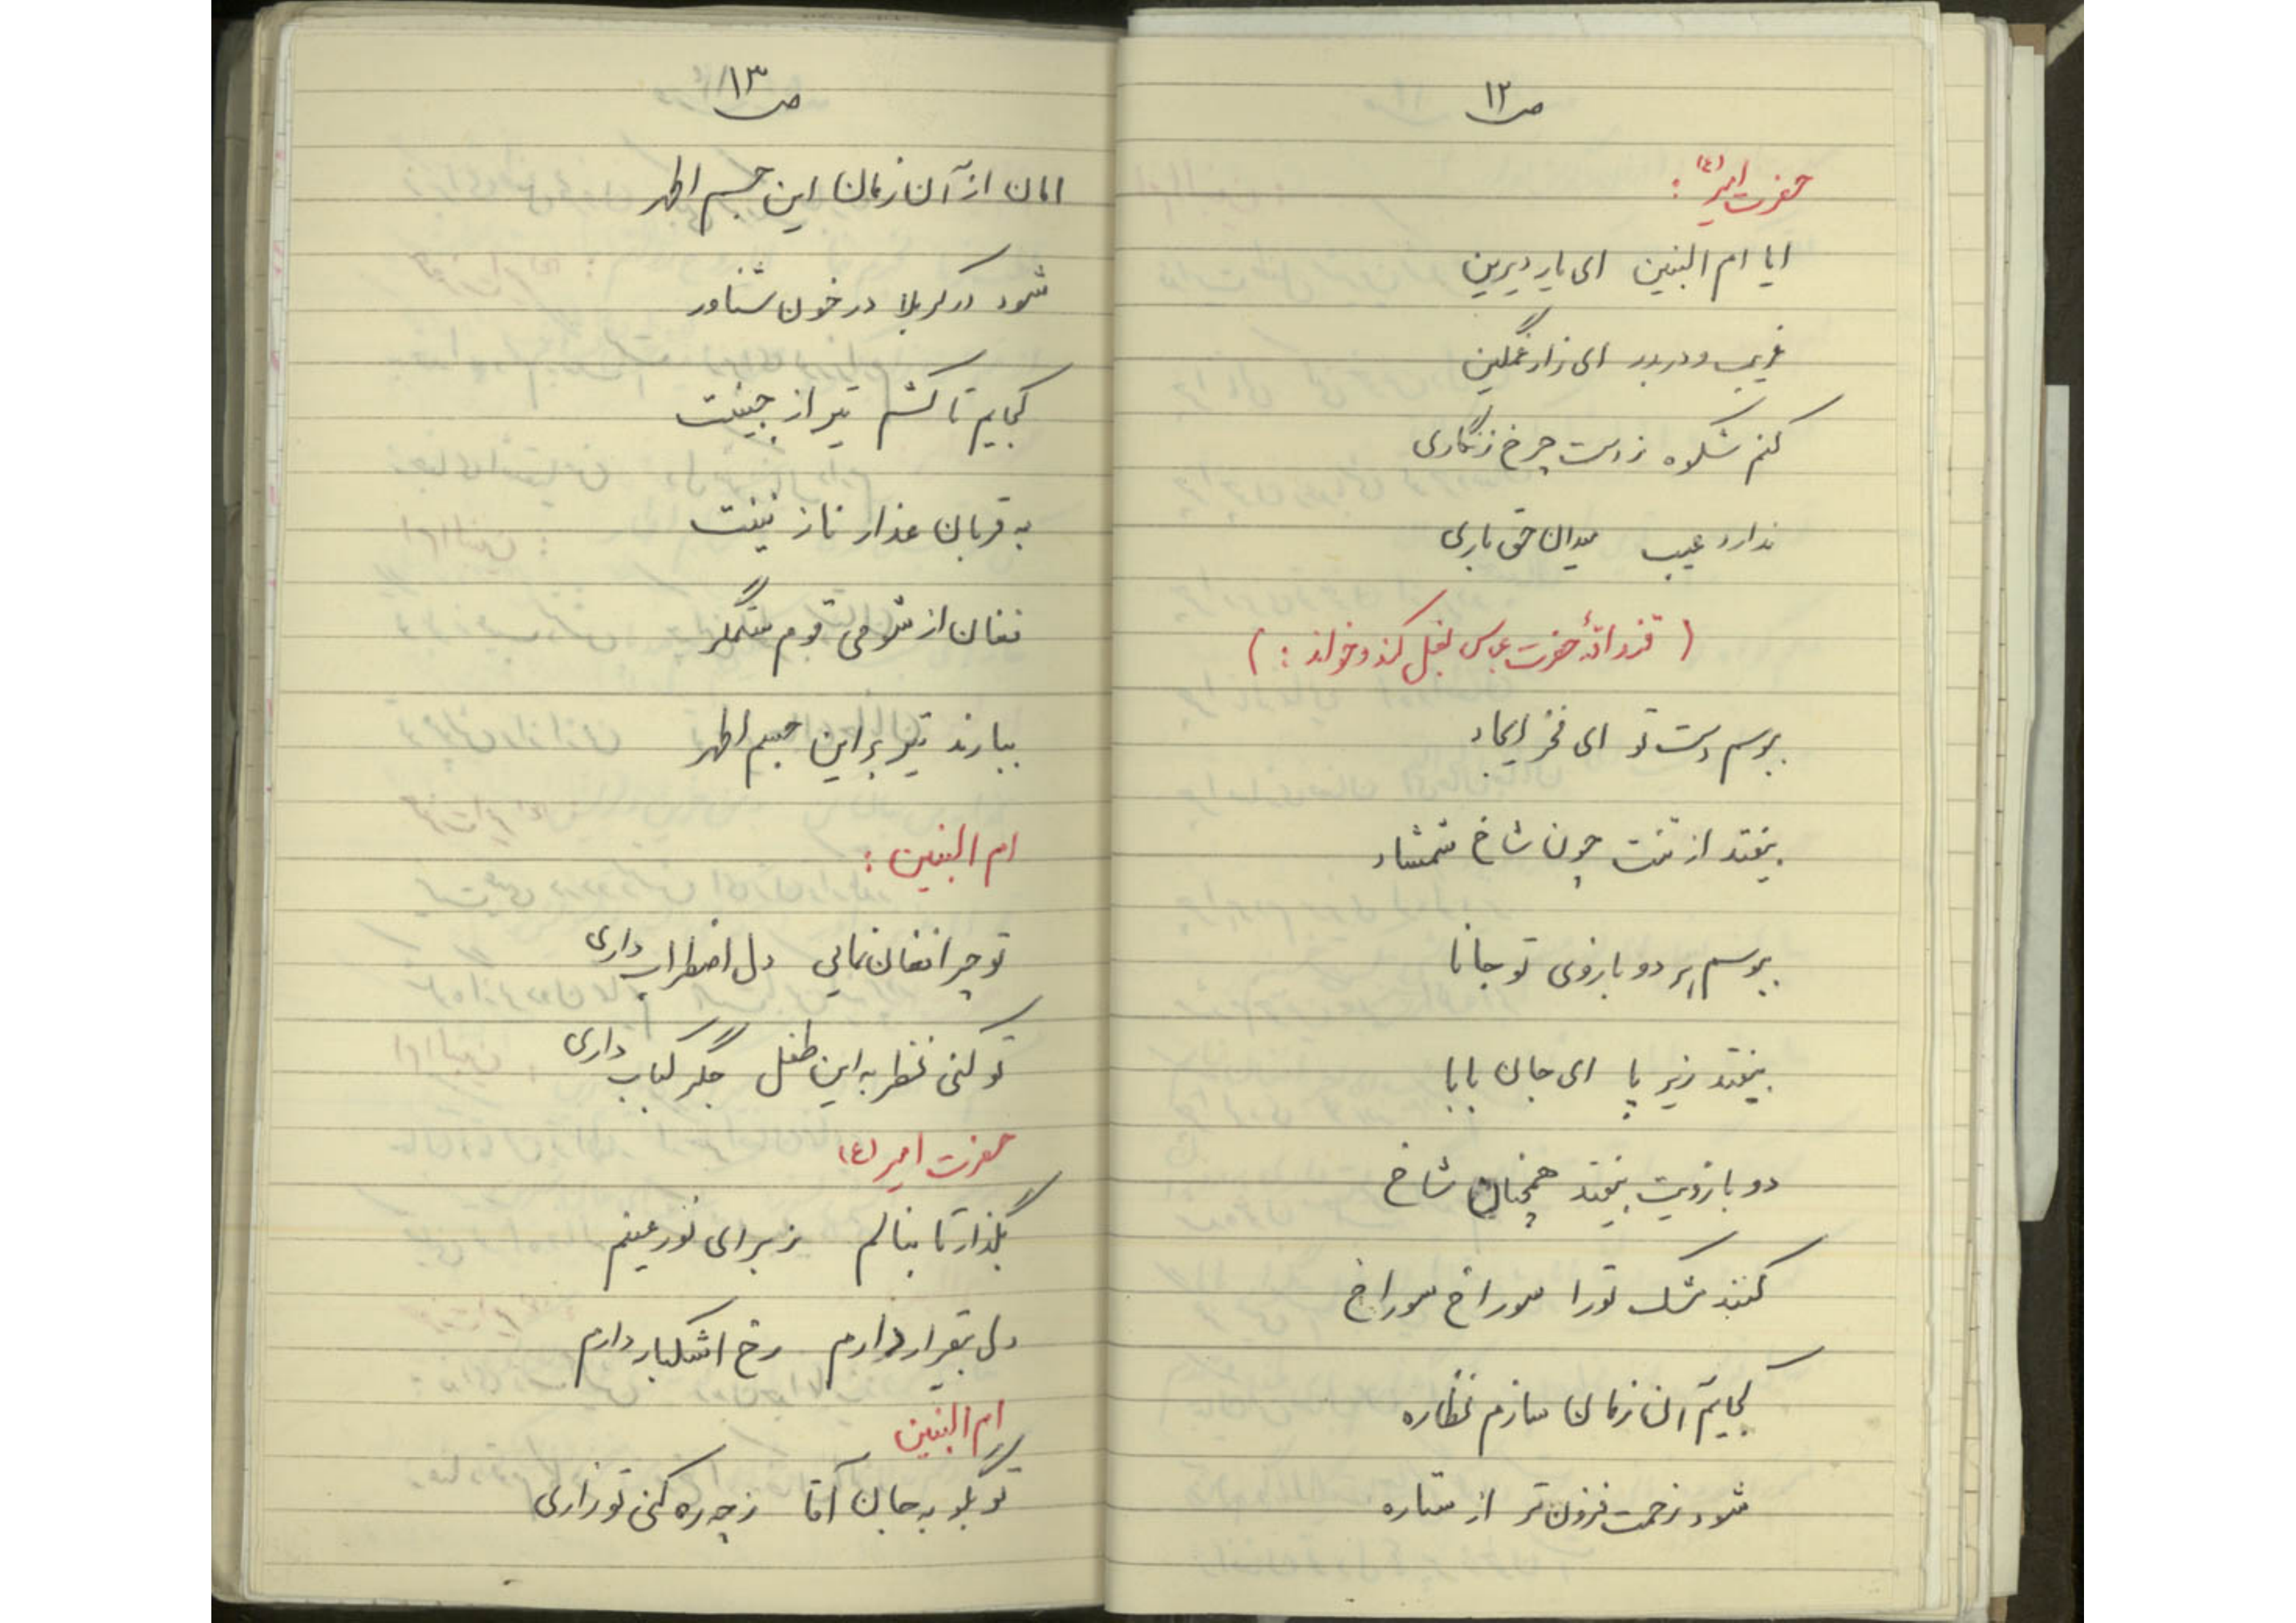 ص ۱۲
حضرت امیر (ع) :
ایا ام البنین ای یار دیرین
غریب و دربدر ای زار غمگین
کنم شکوه ز دست چرخ زنگاری
ندارد عیب میدان حق باری
( حضرت عباس بغل کند و خواند : )
ببوسم دست تو ای فخر ایجاد
بیفتد از تنت چون شاخ شمشاد
ببوسم بر دو بازوی تو جانا
بیفتد زیر پا ای جان بابا
دو بازویت بیفتد همچنان شاخ
کنند مشک تو را سوراخ سوراخ
کجایم آن زمان سازم نظاره
شود زخمت فزون تر از ستاره
ص ۱۳
امان از آن زمان این جسم اطهر
شود در کربلا در خون شناور
کجایم تا کشم تیر از جبینت
به قربان عذار نازنینت
فغان از شومی قوم ستمگر
ببارند تیر بر این جسم اطهر
ام البنین :
تو چرا فغان نمایی دل اضطراب داری
تو کنی نظر به این طفل جگر کباب داری
حضرت امیر (ع)
بگذار تا بنالم ز برای نور عینم
دل بیقرار دارم رخ اشکبار دارم
ام البنین
تو بگو به جان آقا ز چه ره کنی تو زاری